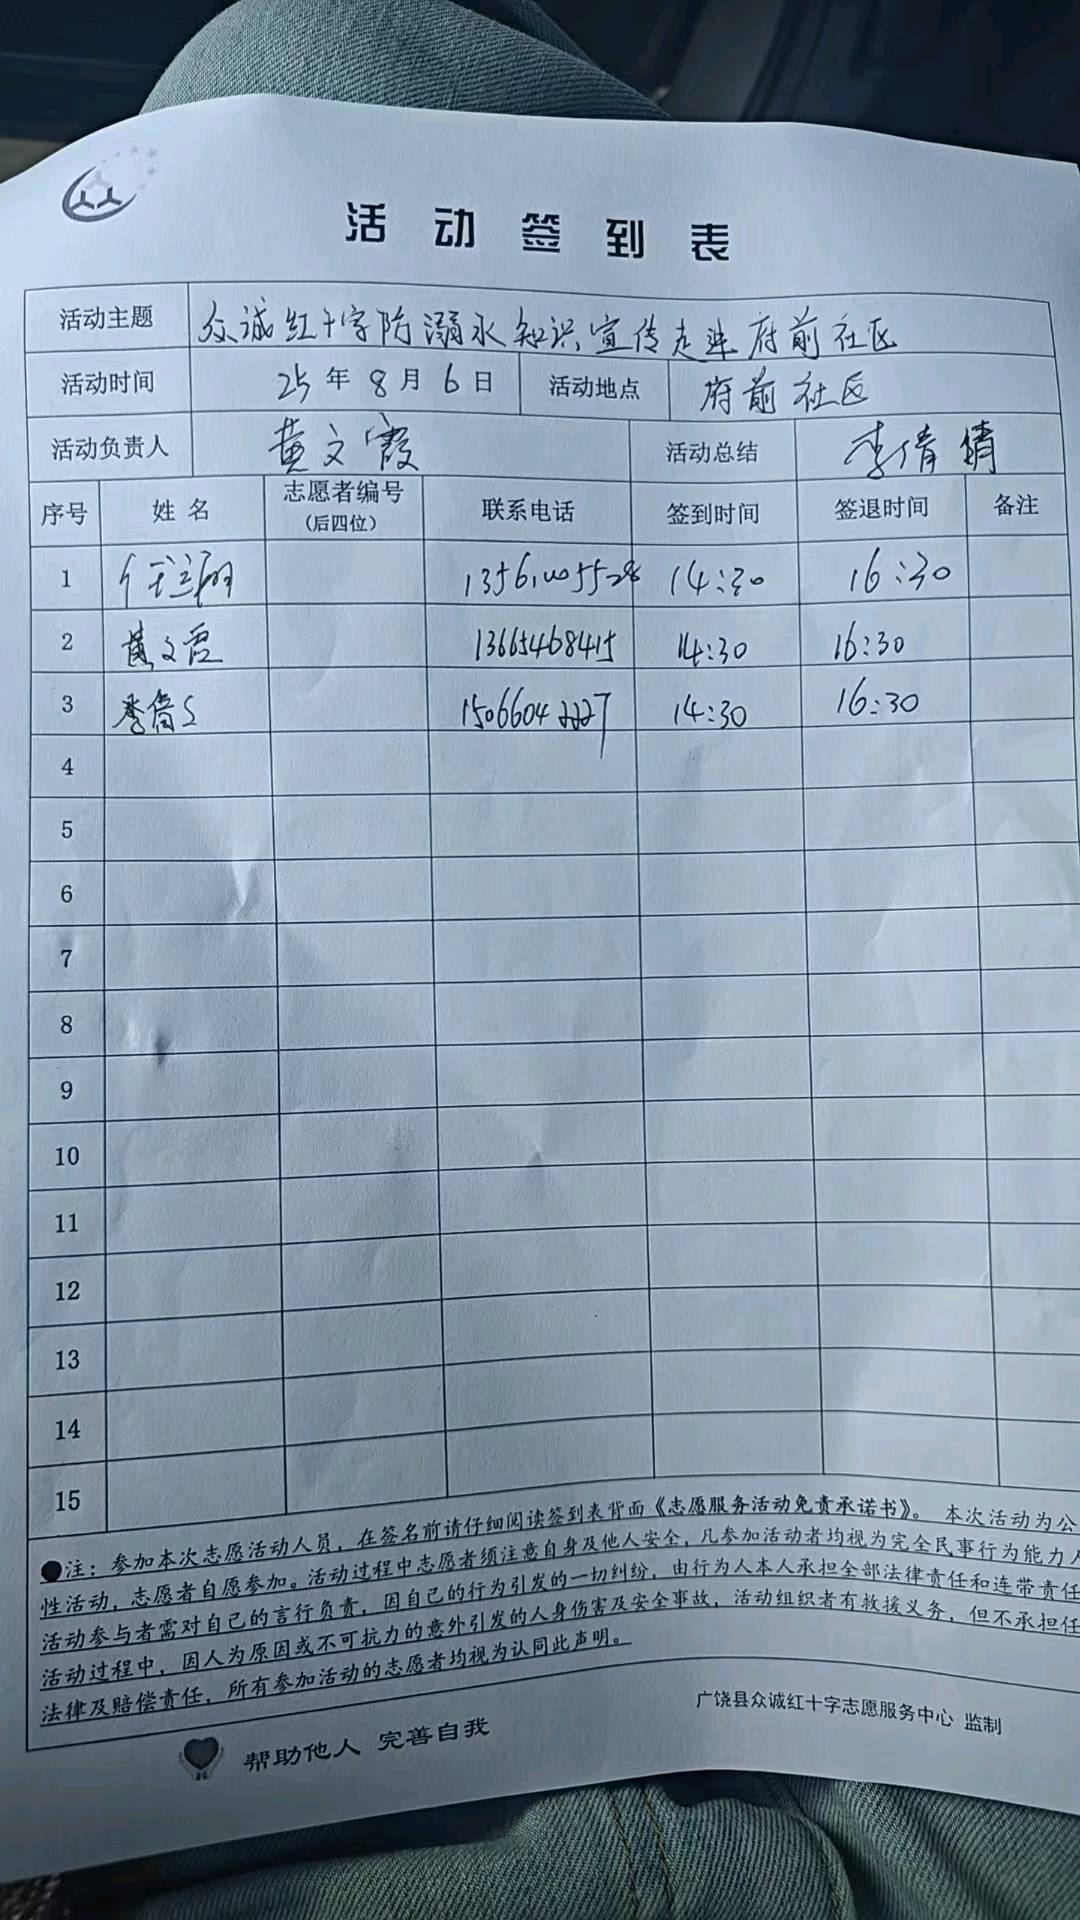 活动签到表
活动主题 众诚红十字防溺水知识宣传走进府前社区
活动时间 25年8月6日 活动地点 府前社区
活动负责人 黄文霞 活动总结 李倩倩
序号 姓名 志愿者编号(后四位) 联系电话 签到时间 签退时间 备注
1 14:30 16:30
2 黄文霞 13665468415 14:30 16:30
3 15066042227 14:30 16:30
4
5
6
7
8
9
10
11
12
13
14
15
●注:参加本次志愿活动人员,在签名前请仔细阅读签到表背面《志愿服务活动免责承诺书》。 本次活动为公
性活动,志愿者自愿参加。活动过程中志愿者须注意自身及他人安全,凡参加活动者均视为完全民事行为能力人
活动参与者需对自己的言行负责,因自己的行为引发的一切纠纷,由行为人本人承担全部法律责任和连带责任
活动过程中,因人为原因或不可抗力的意外引发的人身伤害及安全事故,活动组织者有救援义务,但不承担任
法律及赔偿责任,所有参加活动的志愿者均视为认同此声明。
帮助他人 完善自我
广饶县众诚红十字志愿服务中心 监制